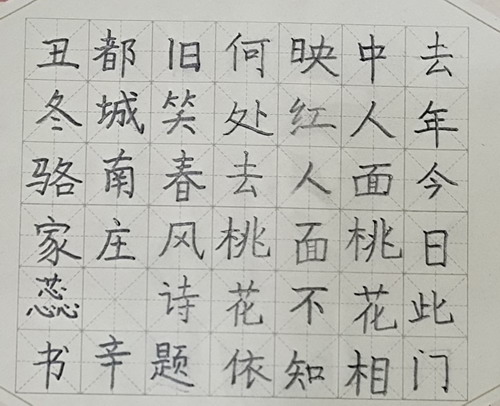 去年今日此门
中人面桃花相
映红人面不知
何处去桃花依
旧笑春风诗题
都城南庄 辛
丑冬骆家蕊书